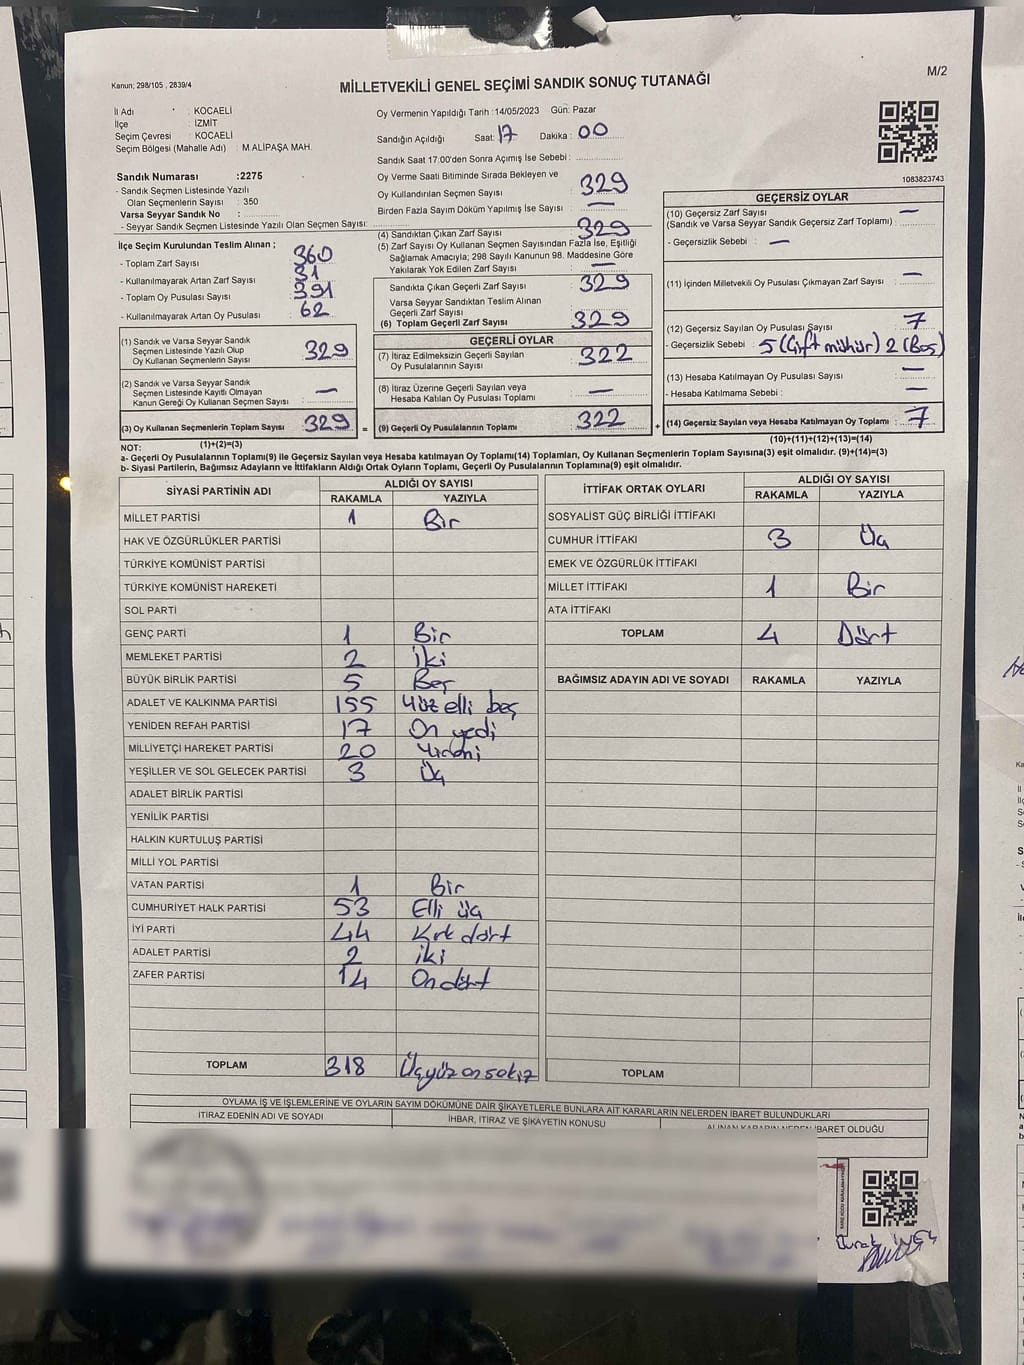 Kanun; 298/105 , 2839/4
MİLLETVEKİLİ GENEL SEÇİMİ SANDIK SONUÇ TUTANAĞI
M/2
İl Adı : KOCAELİ
İlçe : İZMİT
Seçim Çevresi : KOCAELİ
Seçim Bölgesi (Mahalle Adı) : M.ALİPAŞA MAH.
Sandık Numarası :2275
- Sandık Seçmen Listesinde Yazılı
Olan Seçmenlerin Sayısı : 350
Varsa Seyyar Sandık No :
- Seyyar Sandık Seçmen Listesinde Yazılı Olan Seçmen Sayısı:
İlçe Seçim Kurulundan Teslim Alınan ;
- Toplam Zarf Sayısı : 360
- Kullanılmayarak Artan Zarf Sayısı : 31
- Toplam Oy Pusulası Sayısı : 391
- Kullanılmayarak Artan Oy Pusulası : 62
(1) Sandık ve Varsa Seyyar Sandık
Seçmen Listesinde Yazılı Olup
Oy Kullanan Seçmenlerin Sayısı : 329
(2) Sandık ve Varsa Seyyar Sandık
Seçmen Listesinde Kayıtlı Olmayan
Kanun Gereği Oy Kullanan Seçmen Sayısı : —
(3) Oy Kullanan Seçmenlerin Toplam Sayısı : 329 =
(1)+(2)=(3)
Oy Vermenin Yapıldığı Tarih :14/05/2023 Gün: Pazar
Sandığın Açıldığı Saat: 17 Dakika : 00
Sandık Saat 17:00'den Sonra Açımış İse Sebebi :
Oy Verme Saati Bitiminde Sırada Bekleyen ve
Oy Kullandırılan Seçmen Sayısı : 329
Birden Fazla Sayım Döküm Yapılmış İse Sayısı : —
(4) Sandıktan Çıkan Zarf Sayısı : 329
(5) Zarf Sayısı Oy Kullanan Seçmen Sayısından Fazla İse, Eşitliği
Sağlamak Amacıyla; 298 Sayılı Kanunun 98. Maddesine Göre
Yakılarak Yok Edilen Zarf Sayısı : —
Sandıkta Çıkan Geçerli Zarf Sayısı : 329
Varsa Seyyar Sandıktan Teslim Alınan
Geçerli Zarf Sayısı :
(6) Toplam Geçerli Zarf Sayısı : 329
GEÇERLİ OYLAR
(7) İtiraz Edilmeksizin Geçerli Sayılan
Oy Pusulalarının Sayısı : 322
(8) İtiraz Üzerine Geçerli Sayılan veya
Hesaba Katılan Oy Pusulası Toplamı : —
(9) Geçerli Oy Pusulalarının Toplamı : 322 +
1083823743
GEÇERSİZ OYLAR
(10) Geçersiz Zarf Sayısı —
(Sandık ve Varsa Seyyar Sandık Geçersiz Zarf Toplamı) :
- Geçersizlik Sebebi : —
(11) İçinden Milletvekili Oy Pusulası Çıkmayan Zarf Sayısı : —
(12) Geçersiz Sayılan Oy Pusulası Sayısı : 7
- Geçersizlik Sebebi : 5 (Çift mühür) 2 (Boş)
(13) Hesaba Katılmayan Oy Pusulası Sayısı : —
- Hesaba Katılmama Sebebi : —
(14) Geçersiz Sayılan veya Hesaba Katılmayan Oy Toplamı : 7
(10)+(11)+(12)+(13)=(14)
NOT:
a- Geçerli Oy Pusulasının Toplamı(9) ile Geçersiz Sayılan veya Hesaba katılmayan Oy Toplamı(14) Toplamları, Oy Kullanan Seçmenlerin Toplam Sayısına(3) eşit olmalıdır. (9)+(14)=(3)
b- Siyasi Partilerin, Bağımsız Adayların ve İttifakların Aldığı Ortak Oyların Toplamı, Geçerli Oy Pusulalarının Toplamına(9) eşit olmalıdır.
SİYASİ PARTİNİN ADI ALDIĞI OY SAYISI
RAKAMLA YAZIYLA
MİLLET PARTİSİ 1 Bir
HAK VE ÖZGÜRLÜKLER PARTİSİ
TÜRKİYE KOMÜNİST PARTİSİ
TÜRKİYE KOMÜNİST HAREKETİ
SOL PARTİ
GENÇ PARTİ 1 Bir
MEMLEKET PARTİSİ 2 İki
BÜYÜK BİRLİK PARTİSİ 5 Beş
ADALET VE KALKINMA PARTİSİ 155 Yüz elli beş
YENİDEN REFAH PARTİSİ 17 On yedi
MİLLİYETÇİ HAREKET PARTİSİ 20 Yirmi
YEŞİLLER VE SOL GELECEK PARTİSİ 3 Üç
ADALET BİRLİK PARTİSİ
YENİLİK PARTİSİ
HALKIN KURTULUŞ PARTİSİ
MİLLİ YOL PARTİSİ
VATAN PARTİSİ 1 Bir
CUMHURİYET HALK PARTİSİ 53 Elli üç
İYİ PARTİ 44 Kırk dört
ADALET PARTİSİ 2 iki
ZAFER PARTİSİ 14 On dört
TOPLAM 318 Üçyüz on sekiz
İTTİFAK ORTAK OYLARI ALDIĞI OY SAYISI
RAKAMLA YAZIYLA
SOSYALİST GÜÇ BİRLİĞİ İTTİFAKI
CUMHUR İTTİFAKI 3 Üç
EMEK VE ÖZGÜRLÜK İTTİFAKI
MİLLET İTTİFAKI 1 Bir
ATA İTTİFAKI
TOPLAM 4 Dört
BAĞIMSIZ ADAYIN ADI VE SOYADI RAKAMLA YAZIYLA
TOPLAM
OYLAMA İŞ VE İŞLEMLERİNE VE OYLARIN SAYIM DÖKÜMÜNE DAİR ŞİKAYETLERLE BUNLARA AİT KARARLARIN NELERDEN İBARET BULUNDUKLARI
İTİRAZ EDENİN ADI VE SOYADI İHBAR, İTİRAZ VE ŞİKAYETİN KONUSU ALINAN KARARIN NEDEN İBARET OLDUĞU
Burak